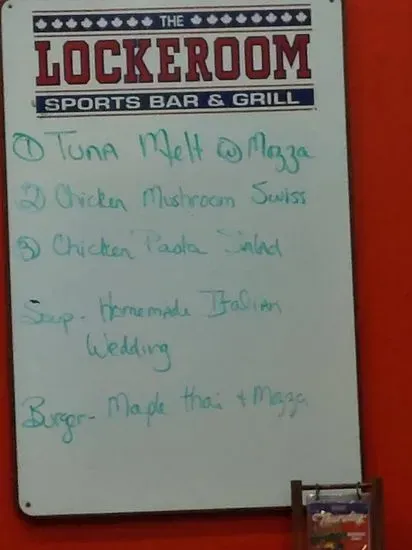 THE
LOCKEROOM
SPORTS BAR & GRILL
① Tuna Melt @ Mozza
2) Chicken Mushroom Swiss
3) Chicken Pasta Salad
Soup - Homemade Italian
Wedding
Burger - Maple thai + Mozza
Thursday